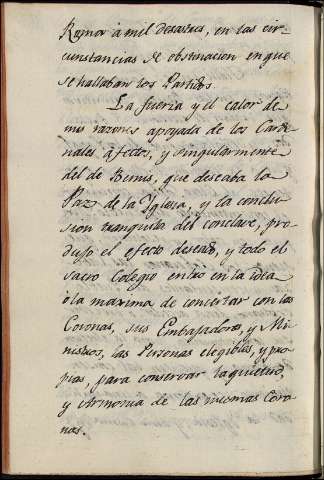 Rumor à mil desastres, en las cir-
cunstancias de obstinacion en que
se hallaban los Partidos.
La fuerza y el calor de
mis razones apoyada de los Carde-
nales afectos, y singularmente
del de Bernis, que deseaba la
Paz de la Iglesia, y la conclu-
sion tranquila del conclave, pro-
dujo el efecto deseado, y todo el
sacro Colegio entrò en la idea
ò la maxima de concertar con las
Coronas, sus Embajadores, y Mi-
nistros, las Personas elegibles, y pro-
pias, para conservar la quietud,
y Armonia de las mismas Coro-
nas.